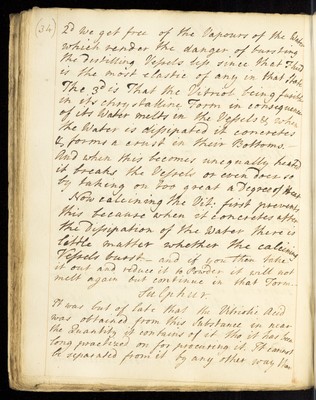 (34)
2d we get free of the Vapours of the Water
which render the danger of bursting
the distilling Vessels less since that Fluid
is the most elastic of any in that State
The 3d is That the Vitriol being fusible
in its chrystalline Form in consequence
of its Water melts in the Vessels & when
the Water is dissipated it concretes
& forms a crust in their Bottoms. —
And when this becomes unequally heated
it breaks the Vessels or even does so
by taking on too great a Degree of Heat
Now calcining the Vit: first prevents
this because when it concretes after
the Dissipation of the Water there is
little matter whether the calcining
Vessels burst — and if you then take
it out and reduce it to Powder it will not
melt again but continue in that Form.
Sulphur
It was but of late that the Vitriolic Acid
was obtained from this Substance in near
the Quantity it contains of it tho it has been
long practized on for procuring it. It cannot
be separated from it by any other way than